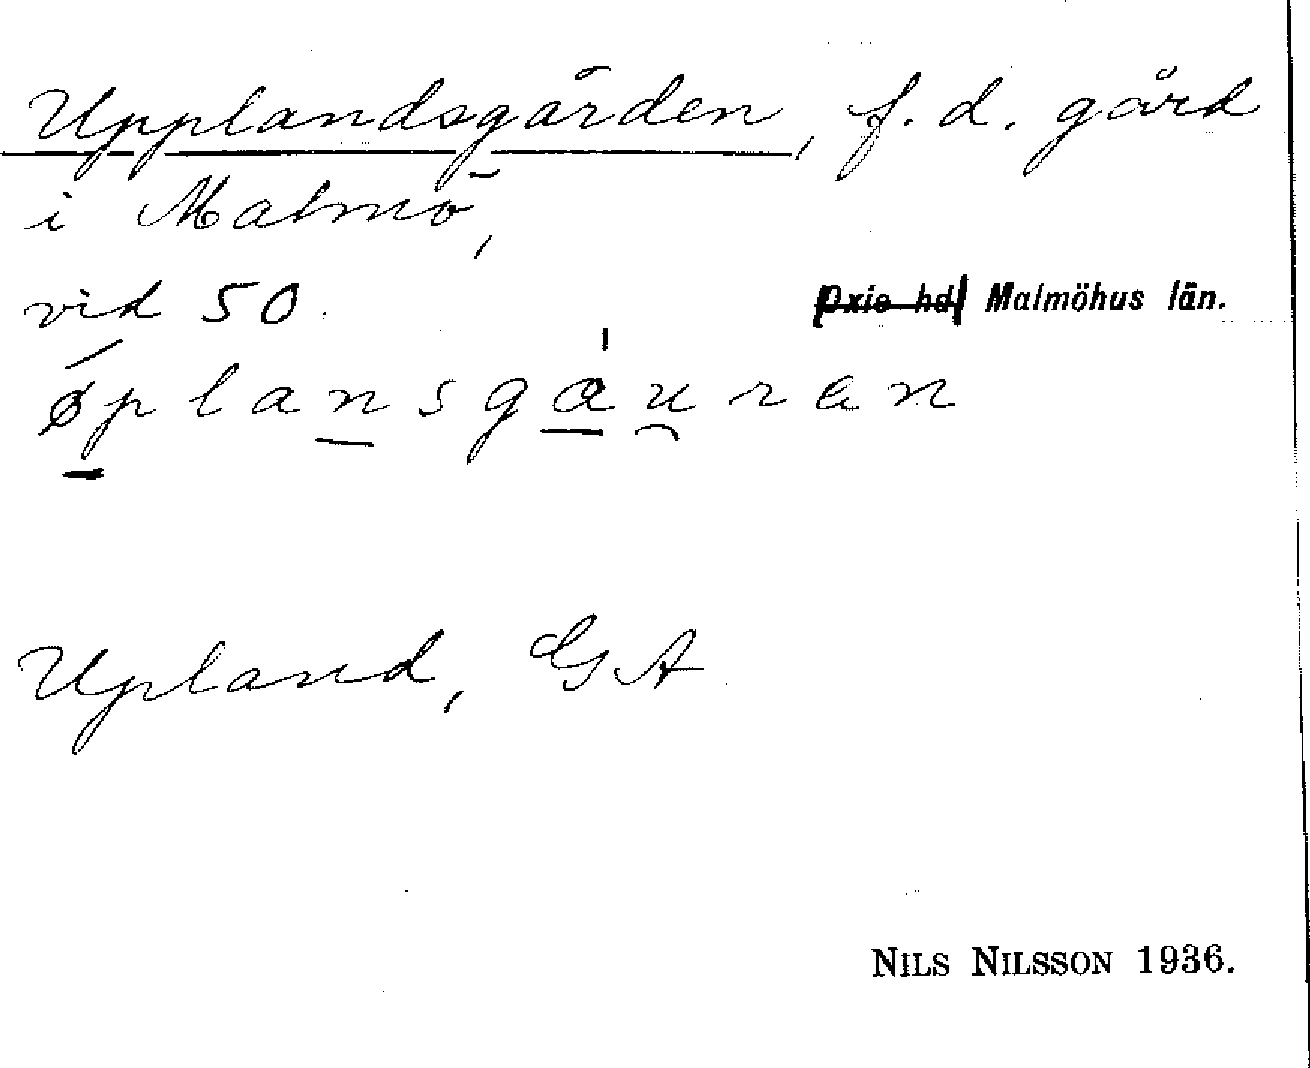 Upplandsgården, f.d. gård
i Malmö,
vid 50. Oxie hd Malmöhus län.
øplansgauran
Upland, GA
NILS NILSSON 1936.